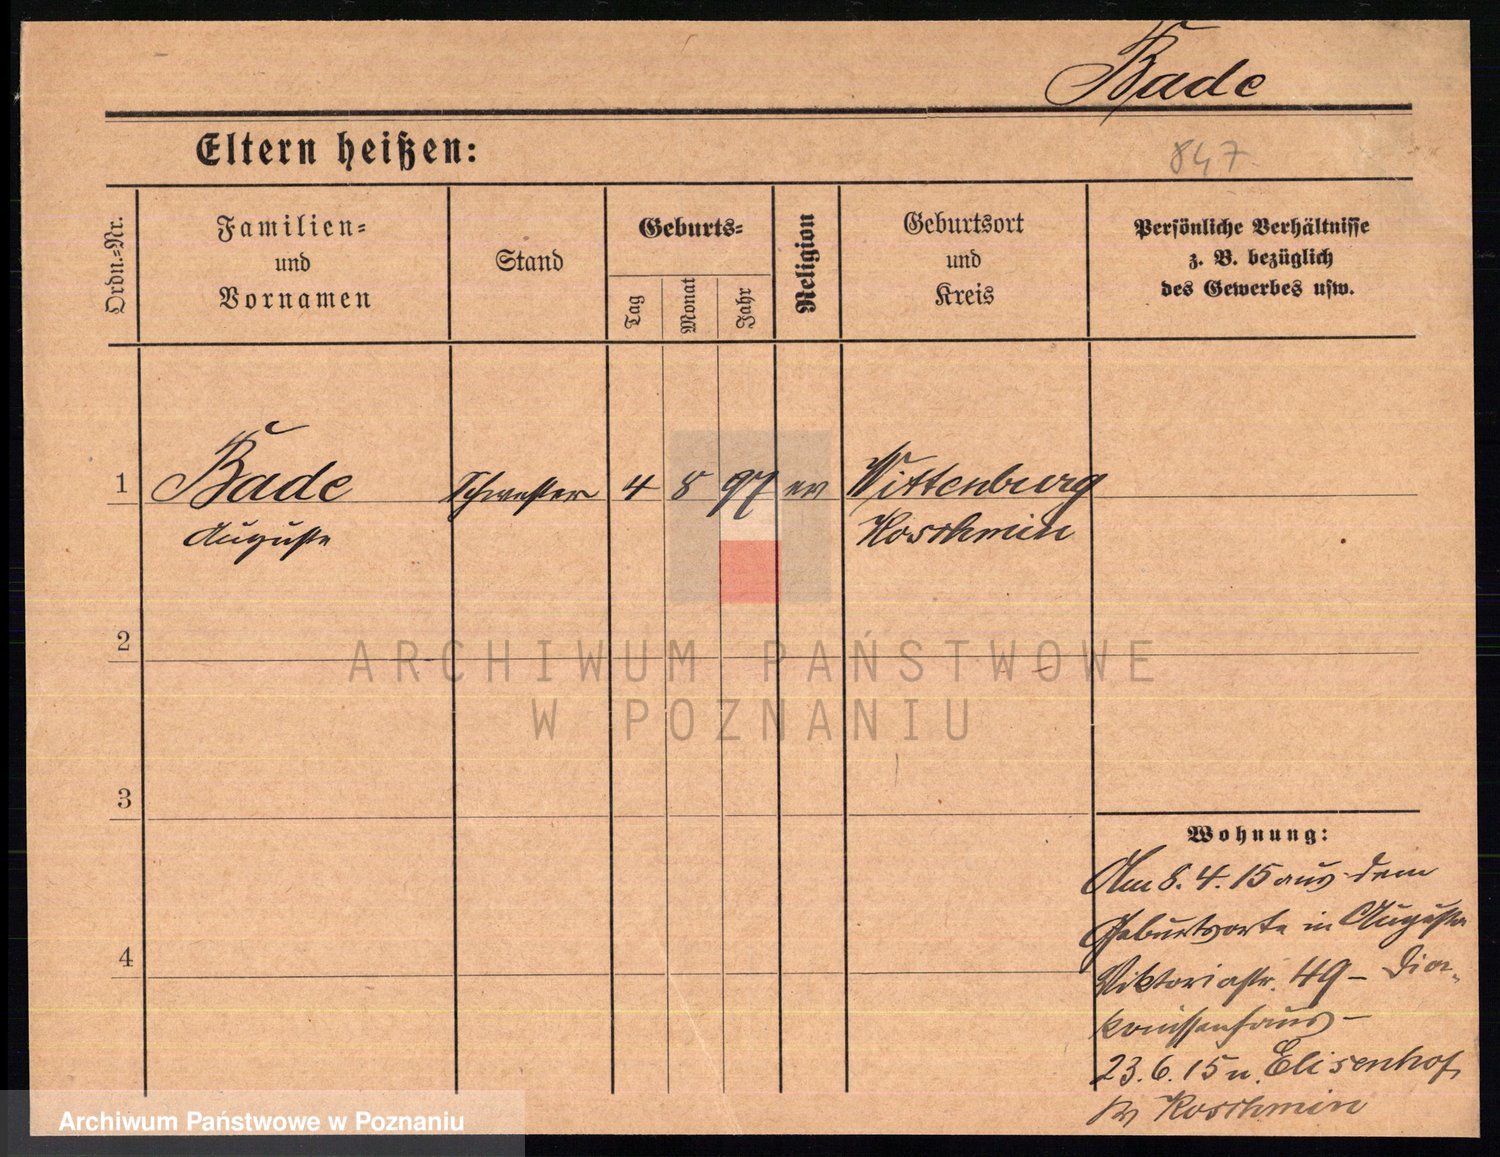 Bade
Eltern heißen:
847
Ordn.-Nr.
Familien-
und
Vornamen
Stand
Geburts-
Tag
Monat
Jahr
Religion
Geburtsort
und
Kreis
Persönliche Verhältnisse
z. B. bezüglich
des Gewerbes usw.
1
Bade
Auguste
Schwester
4
8
97
ev
Wittenburg
Koschmin
2
3
4
ARCHIWUM PAŃSTWOWE
W POZNANIU
Wohnung:
Am 8. 4. 15 aus dem
Geburtsorte in Augusta
Viktoriastr. 49 – Dia-
konissenhaus –
23. 6. 15 n. Elisenhof
Koschmin
Archiwum Państwowe w Poznaniu